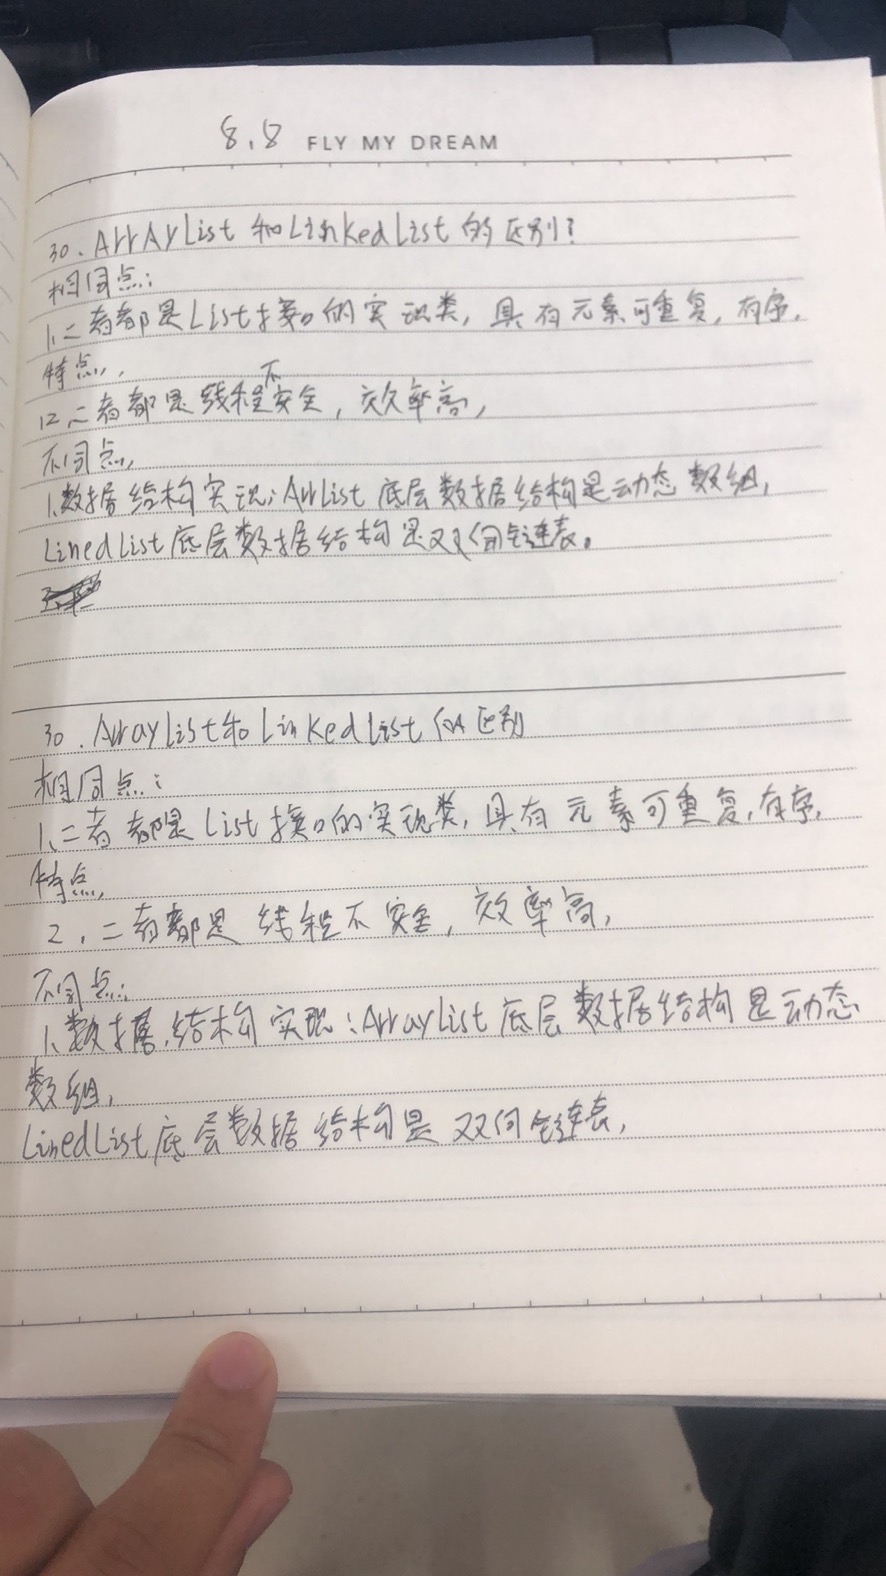 8.8 FLY MY DREAM
30. ArrAyList 和LinkedList 的区别?
相同点:
1、二者都是List接口的实现类, 具有元素可重复, 有序,
特点,
12、二者都是线程不安全, 效率高,
不同点,
1、数据结构实现: ArrList 底层数据结构是动态数组,
LinedList底层数据结构是双向链表。
30. ArrayList和LinkedList的区别
相同点:
1、二者都是List接口的实现类, 具有元素可重复, 有序,
特点,
2. 二者都是线程不安全, 效率高,
不同点:
1、数据结构实现: ArrayList 底层数据结构是动态
数组,
LinedList底层数据结构是双向链表,